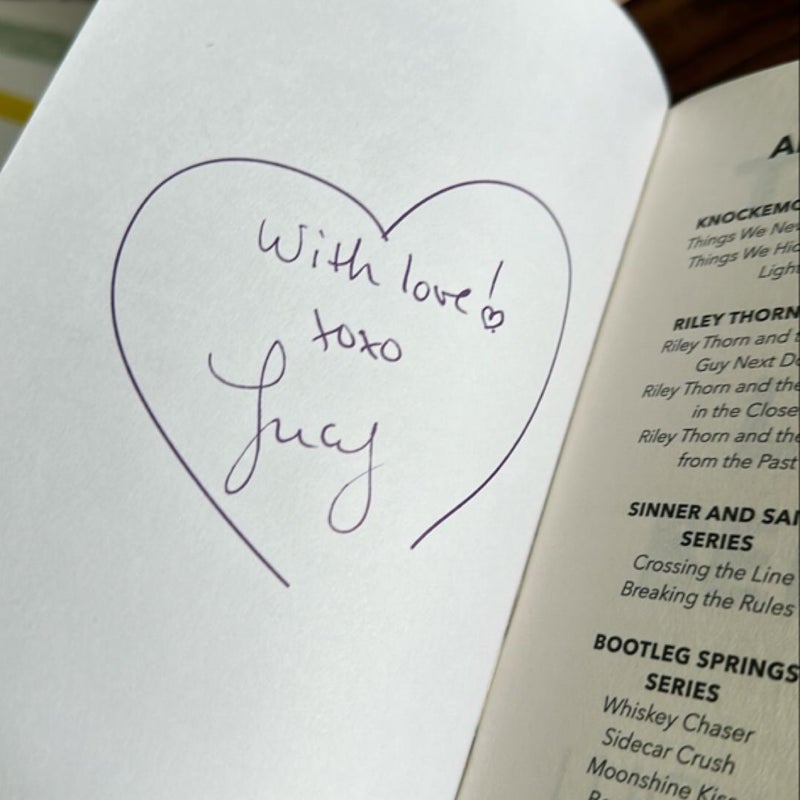 With love!
xoxo
Lucy
KNOCKEMO
Things We Nev
Things We Hid
Light
RILEY THORN
Riley Thorn and t
Guy Next Do
Riley Thorn and the
in the Close
Riley Thorn and the
from the Past
SINNER AND SAI
SERIES
Crossing the Line
Breaking the Rules
BOOTLEG SPRINGS
SERIES
Whiskey Chaser
Sidecar Crush
Moonshine Kiss